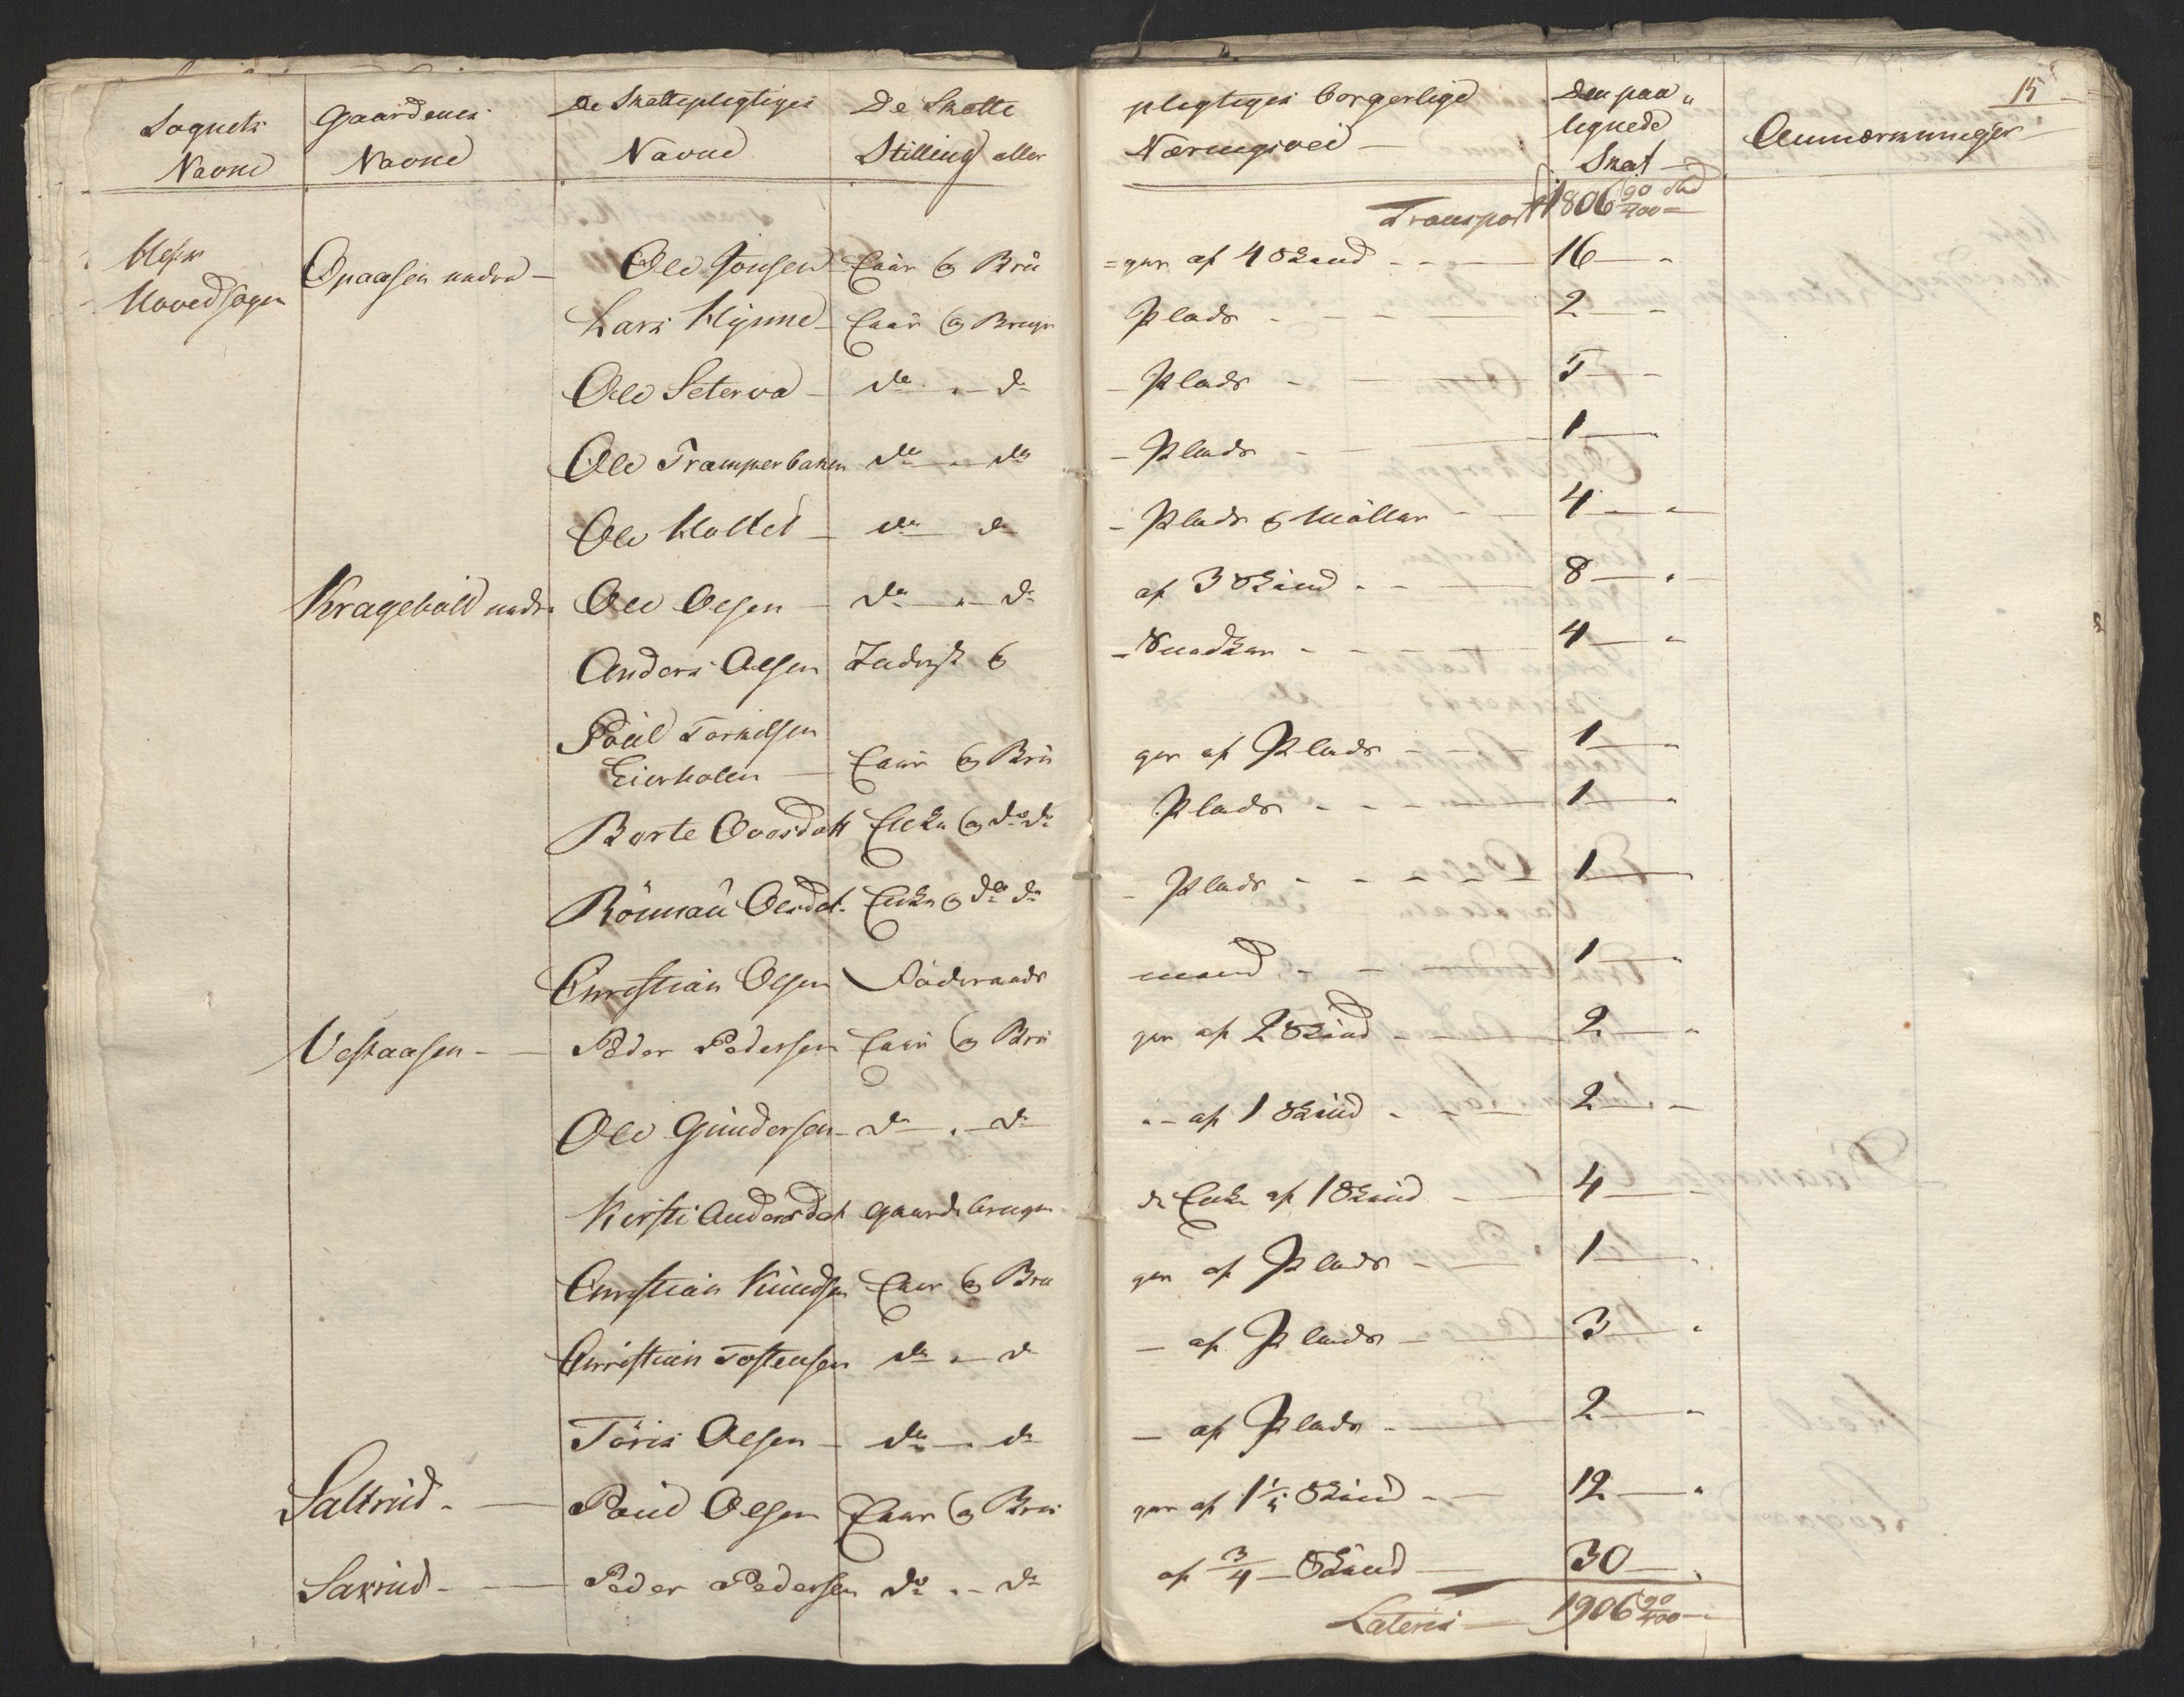 15
Sognets Navne | Gaardenes Navne | De Skattepligtiges Navne | De Skatte pligtiges borgerlige Stilling eller Næringsvei | Den paa„ lignede Skat | Anmærkninger
Transport 1806 90/400
Næs Hovedsogn | Opaasen nedre | Ole Jonsen | Eier og Bru = ger af 4 Skind | 16
Lars Kynne | Eier og Bruger Plads | 2
Ole Seterva | do do Plads | 5
Ole Tramperbaken | do do Plads | 1
Ole Kollet | do do Plads & Møller | 4
Kragebøll nedre | Ole Olsen | do do af 3 Skind | 8
Anders Olsen | Inderst & Snedker | 4
Poul Torkelsen Eierholen | Eier og Bru ger af Plads | 1
Borte Ovesdatt | Enke og do do Plads | 1
Rønnau Olesdat. | Enke og do do Plads | 1
Christian Olsen | Föderaads mand | 1
Vestaasen | Peder Pedersen | Eier og Bru ger af 2 Skind | 2
Ole Gundersen | do do af 1 Skind | 2
Kirsti Andersdat | Gaardbrugen de Enke af 1 Skind | 4
Christian Knudsen | Eier og Bru ger af Plads | 1
Christian Tostensen | do do af Plads | 3
Töris Olsen | do do af Plads | 2
Saltrud | Poul Olsen | Eier og Bru ger af 1 1/4 Skind | 12
Saxrud | Peder Pedersen | do do af 3/4 Skind | 30
Lateris 1906 90/400